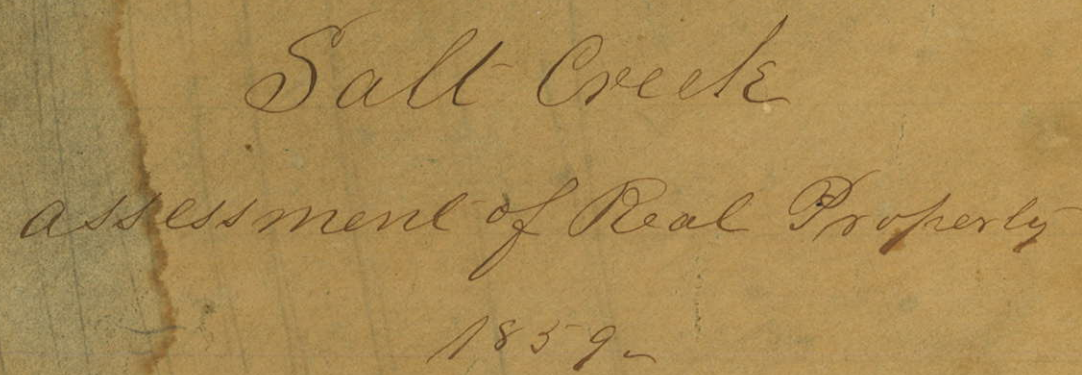 Salt Creek
assessment of Real Property
1859